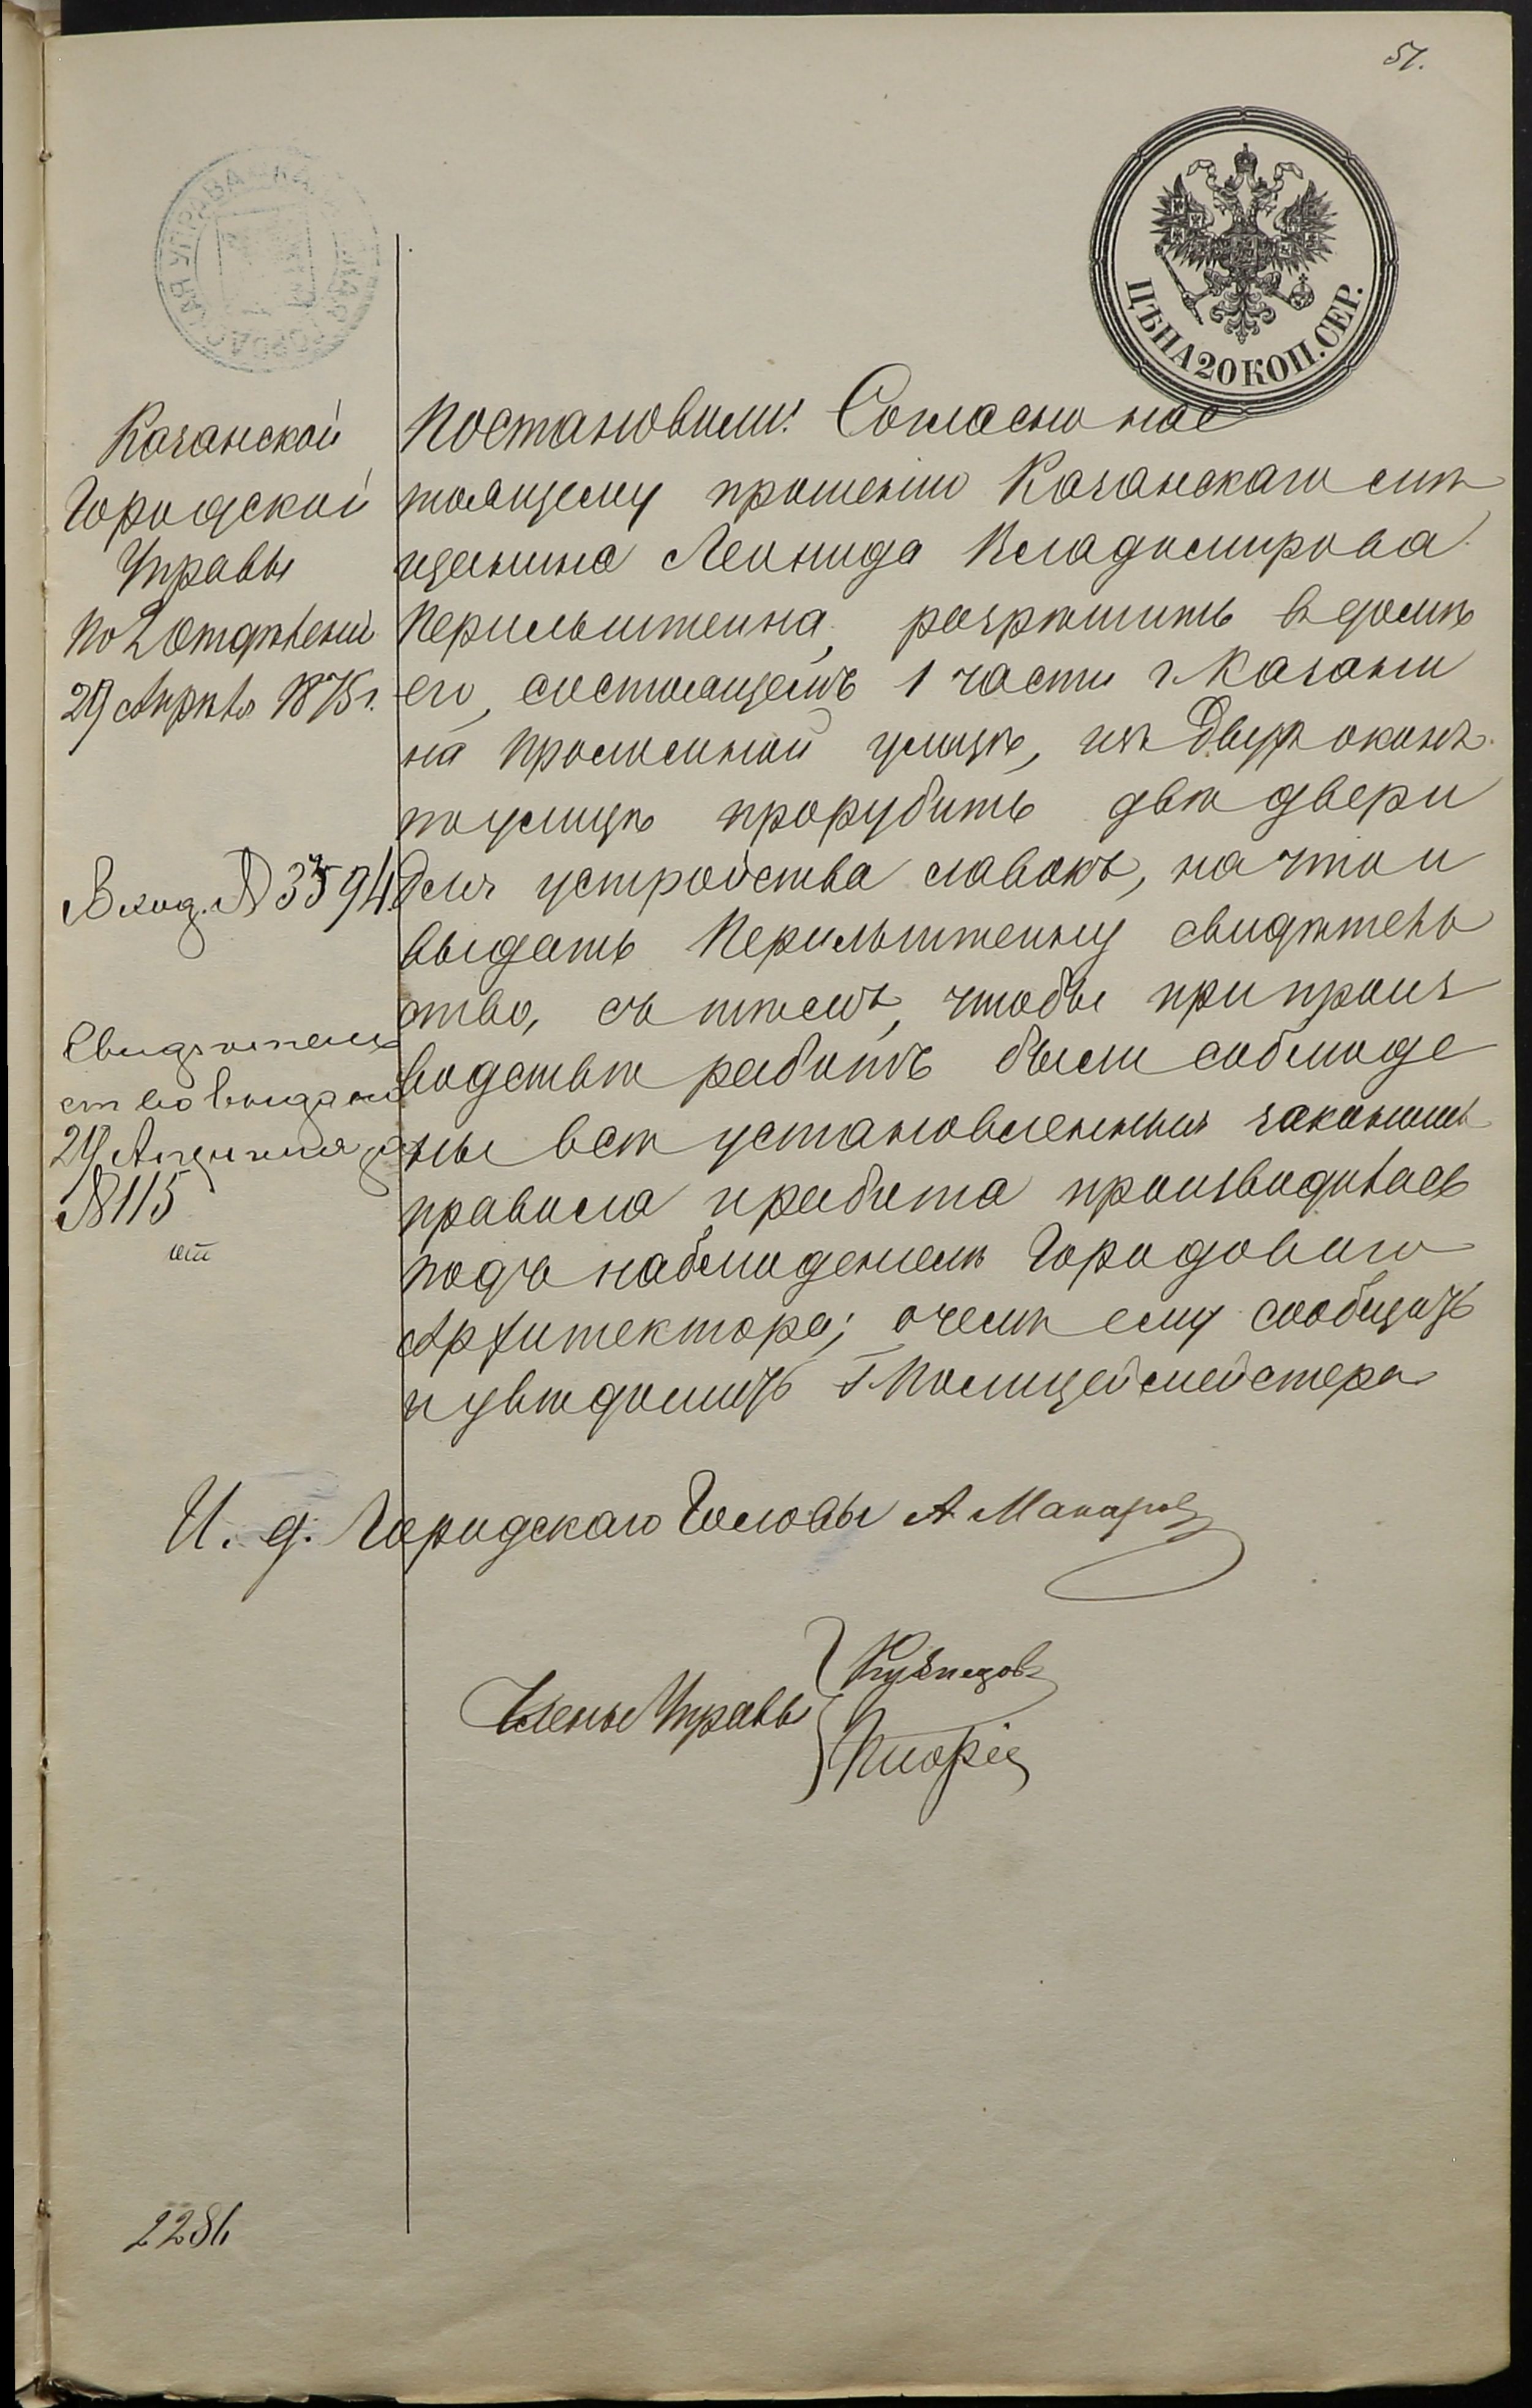 51.
ЦѢНА 20 КОП. СЕР.
КАЗАНСКАЯ ГОРОДСКАЯ УПРАВА
Казанской
Городской
Управы
по 2 Отдѣленію
29 Апрѣля 1875 г.
Вход. № 3594.
Свидѣтель
ство выдано
29 Апрѣля за
№ 115
Постановили: Согласно нас
тоящему прошенію Казанскаго мѣ
щанина Леонида Владимирова
Перильштейна, разрѣшить въ домѣ
его, состоящемъ 1 части г. Казани
на Проломной улицѣ, изъ двухъ оконъ
по улицѣ прорубить двѣ двери
для устройства лавокъ, на что и
выдать Перильштейну свидѣтель
ство, съ тѣмъ, чтобы при произ
водствѣ работъ были соблюде
ны всѣ установленныя закономъ
правила и работа производилась
подъ наблюденіемъ Городоваго
Архитектора; о чемъ ему сообщить
и увѣдомить Г. Полицеймейстера
И. д. Городскаго Головы А. Макаровъ
Члены Управы
Кузнецовъ
2286